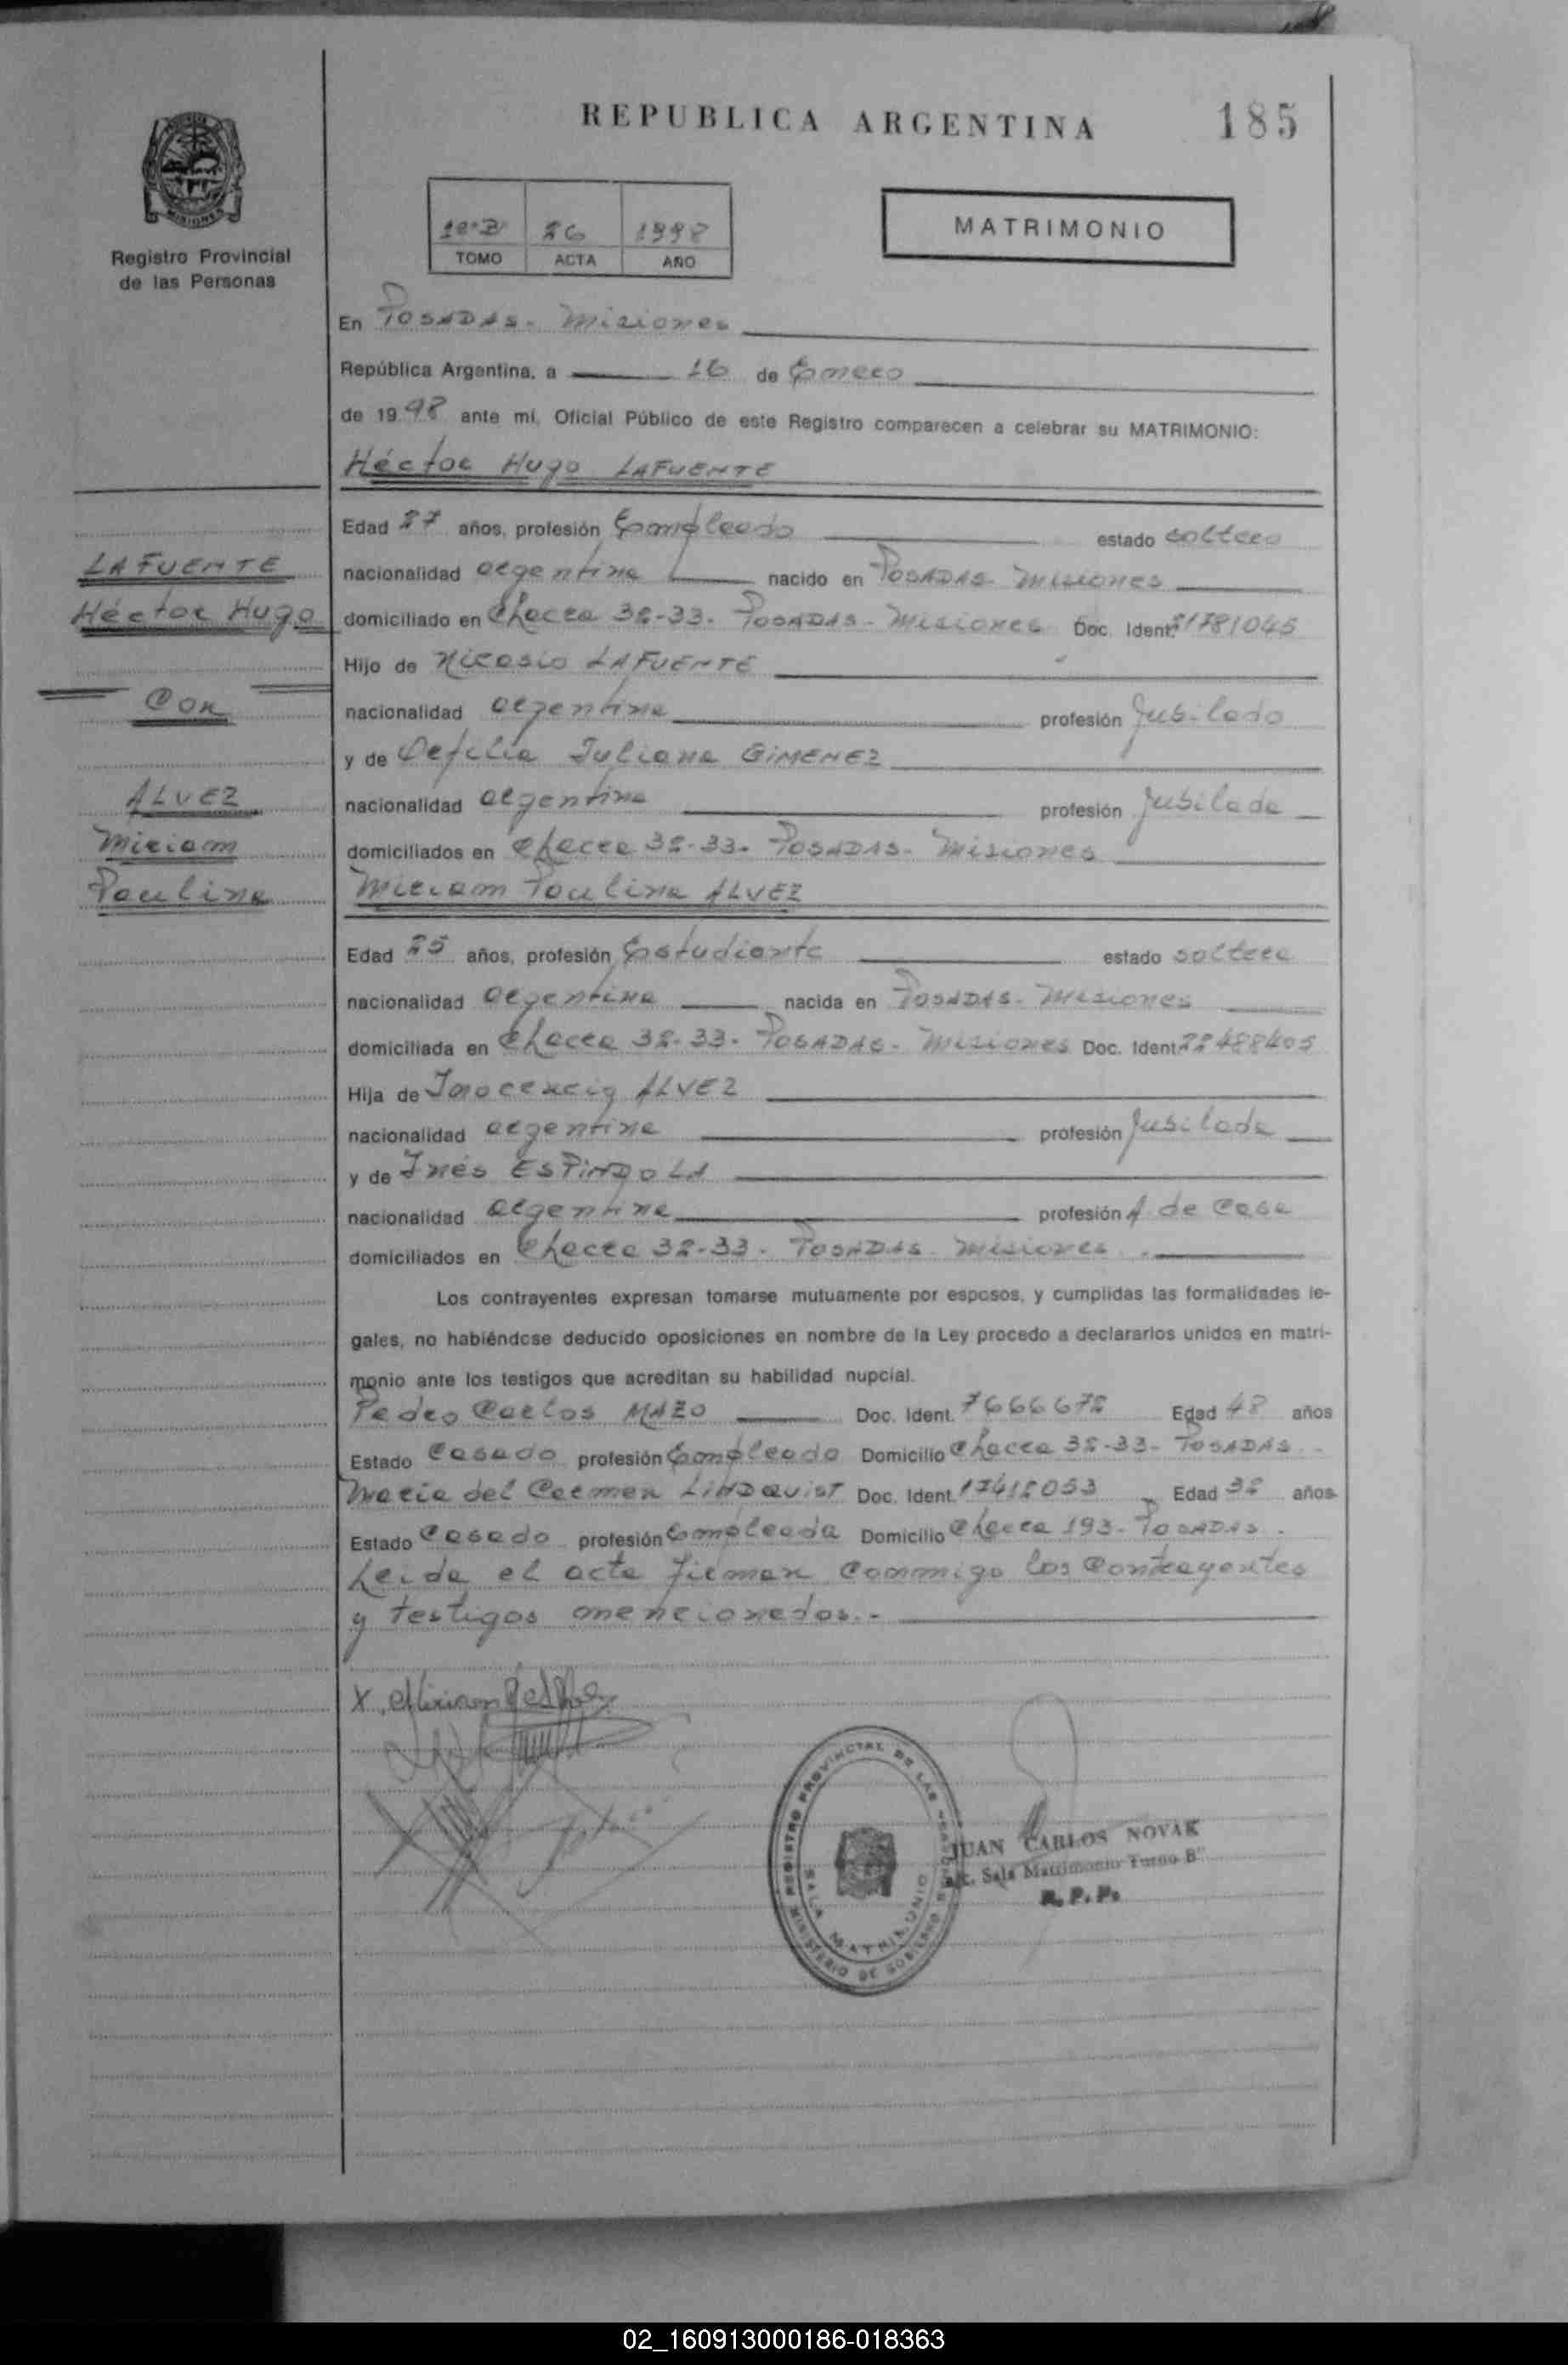 REPUBLICA ARGENTINA
185
MISIONES
Registro Provincial
de las Personas
1998
TOMO ACTA AÑO
MATRIMONIO
En POSADAS - Misiones
República Argentina, a 16 de Enero
de 19 98 ante mi, Oficial Público de este Registro comparecen a celebrar su MATRIMONIO:
Héctor Hugo LAFUENTE
Edad 27 años, profesión Empleado estado soltero
LAFUENTE
nacionalidad argentina nacido en POSADAS - Misiones
Héctor Hugo
domiciliado en Chacra 32-33 - POSADAS - Misiones Doc. Ident. 21781045
Hijo de Nicasio LAFUENTE
CON
nacionalidad argentina profesión Jubilado
y de Juliana GIMENEZ
ALVEZ
nacionalidad argentina profesión Jubilada
Miriam
domiciliados en Chacra 32-33 - POSADAS - Misiones
Paulina
Miriam Paulina ALVEZ
Edad 25 años, profesión Estudiante estado soltera
nacionalidad argentina nacida en POSADAS - Misiones
domiciliada en Chacra 32-33 - POSADAS - Misiones Doc. Ident. 22488405
Hija de ALVEZ
nacionalidad argentina profesión
y de Inés ESPINDOLA
nacionalidad argentina profesión A. de Casa
domiciliados en Chacra 32-33 - POSADAS - Misiones
Los contrayentes expresan tomarse mutuamente por esposos, y cumplidas las formalidades le-
gales, no habiéndose deducido oposiciones en nombre de la Ley procedo a declararlos unidos en matri-
monio ante los testigos que acreditan su habilidad nupcial.
Pedro Carlos MAZO Doc. Ident. 7666672 Edad 48 años
Estado Casado profesión Empleado Domicilio Chacra 32-33 - POSADAS -
Maria del Carmen LINDQUIST Doc. Ident. Edad 32 años
Estado Casado profesión Empleada Domicilio Chacra 193 - POSADAS.
Leida el acta firman conmigo los contrayentes
y testigos mencionados.-
X
REGISTRO PROVINCIAL DE LAS PERSONAS
SALA MATRIMONIO
MINISTERIO DE GOBIERNO
JUAN CARLOS NOVAK
a/c. Sala Matrimonio Turno "B"
R. P. P.
02_160913000186-018363